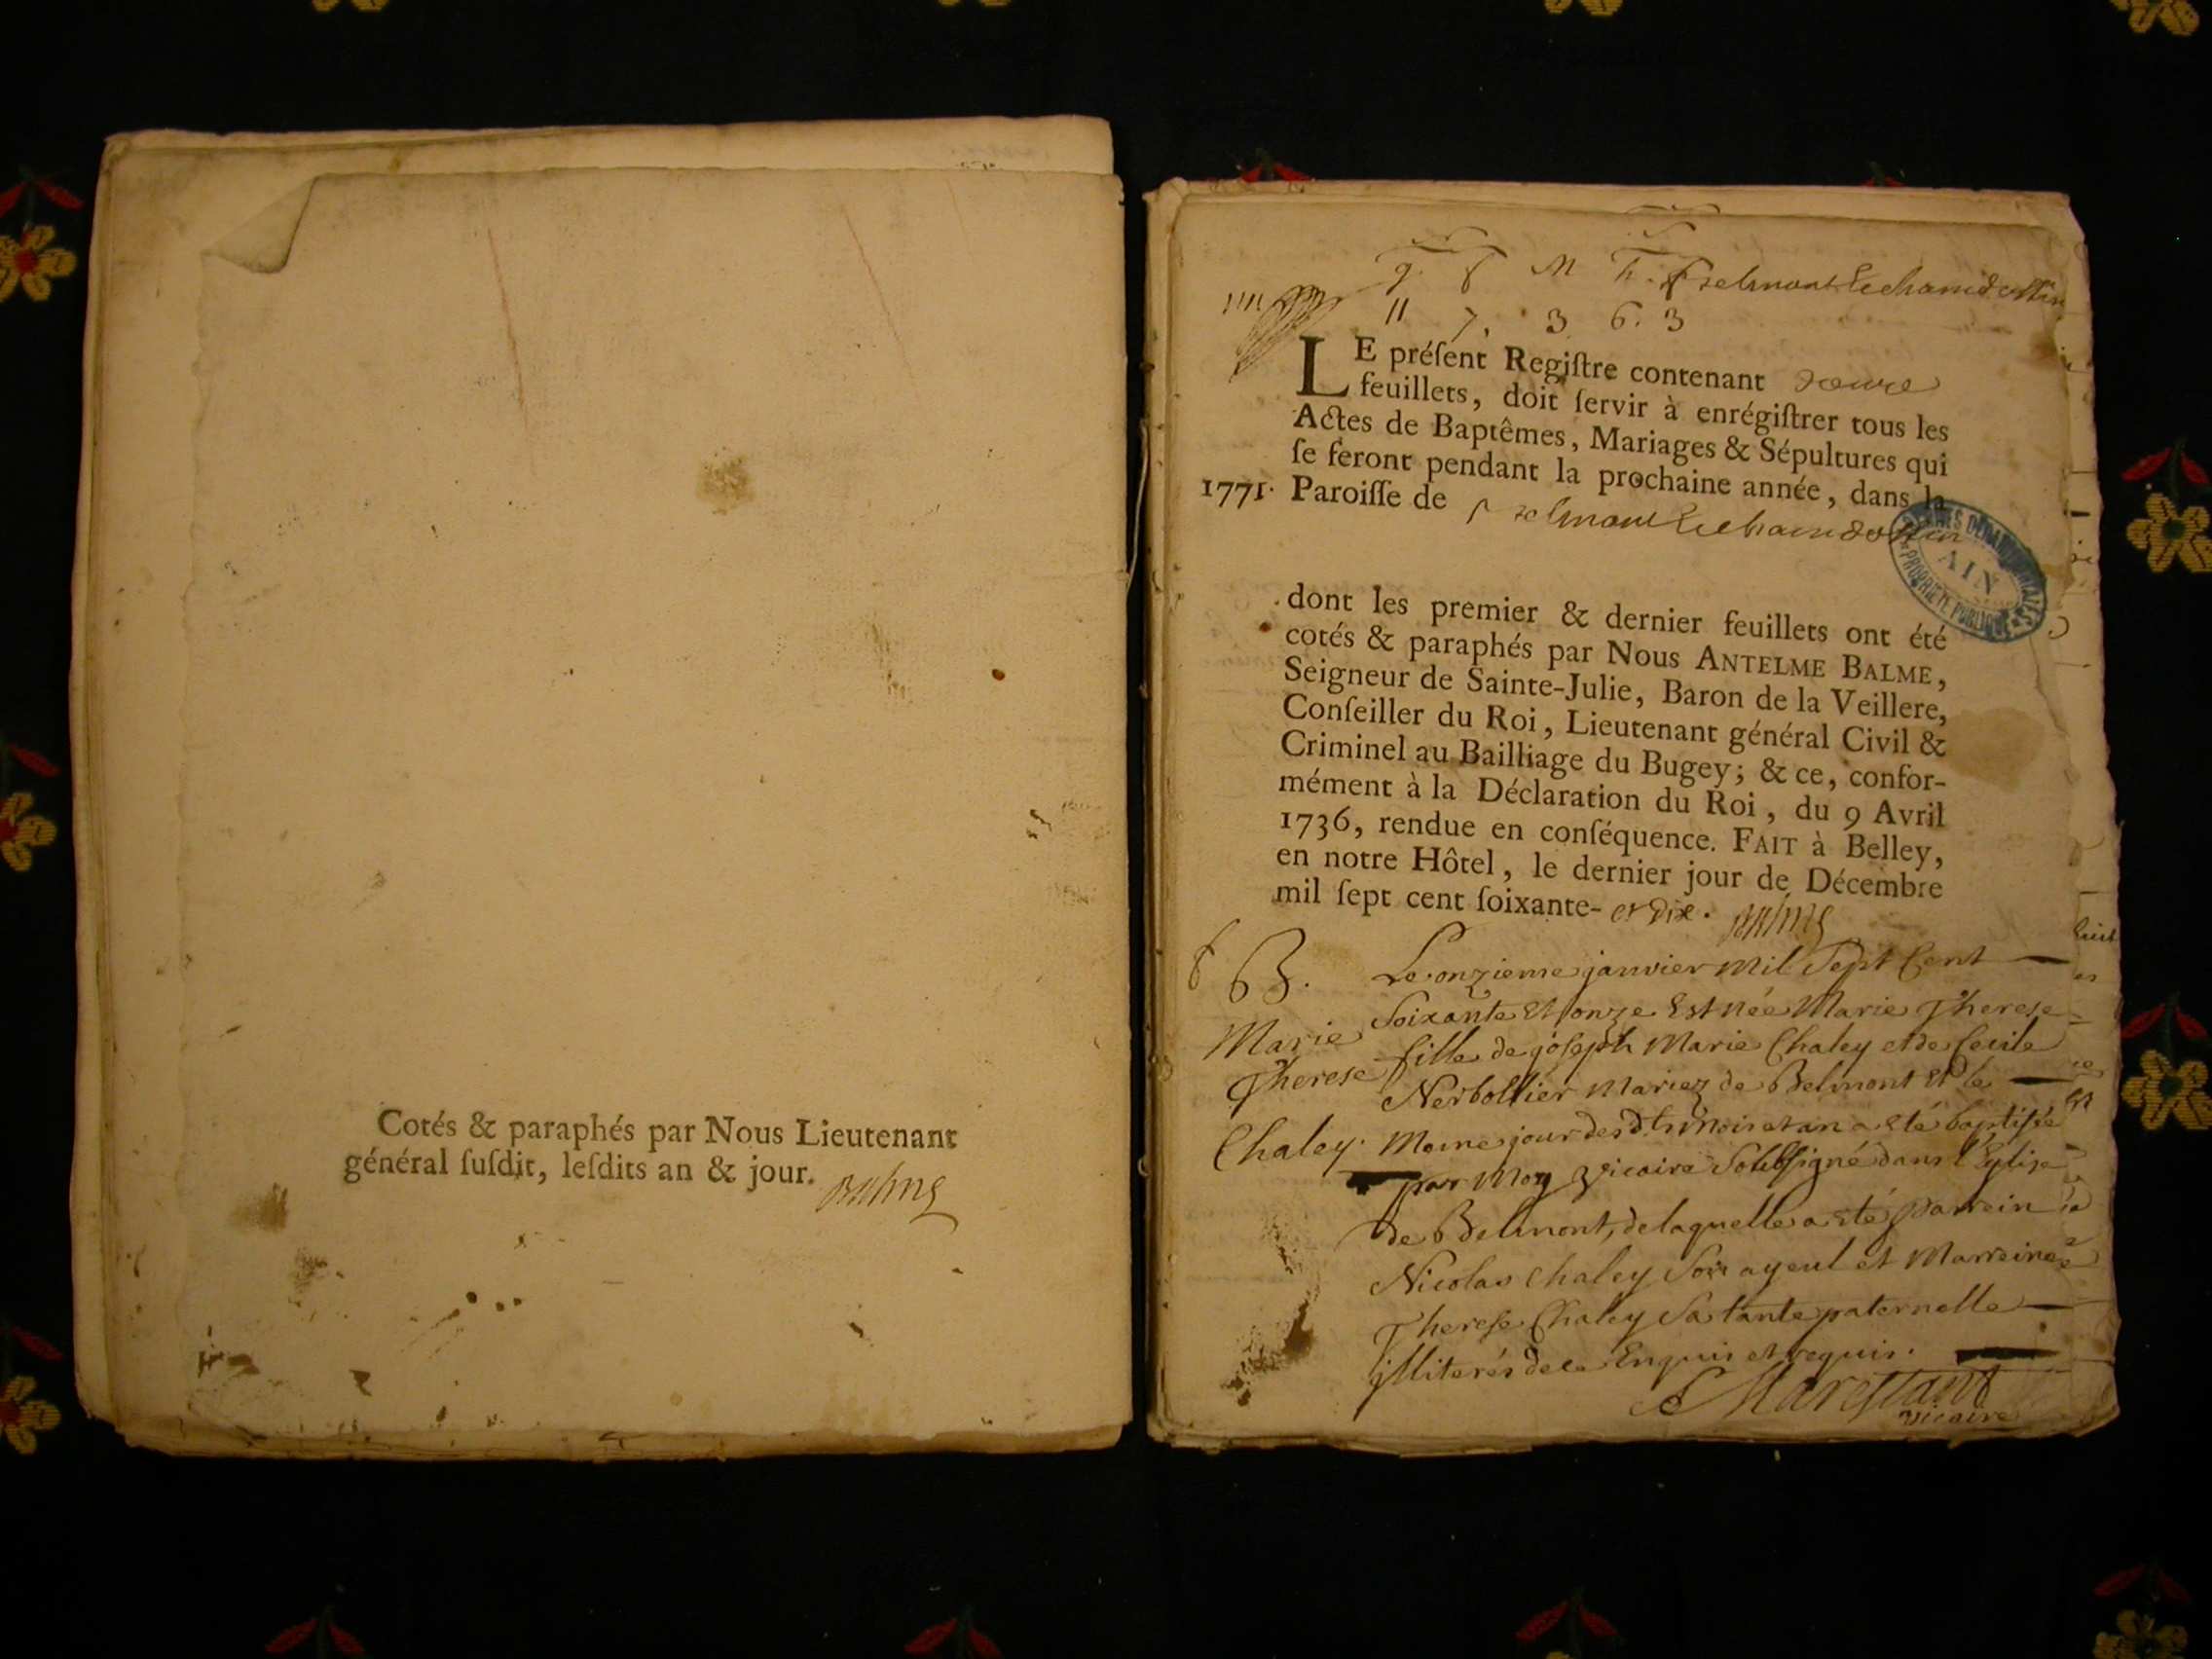 Cotés & paraphés par Nous Lieutenant
général ſuſdit, leſdits an & jour.
Balme
g. S M h.
11 7. 3 6. 3
LE préſent Regiſtre contenant
feuillets, doit ſervir à enrégiſtrer tous les
Actes de Baptêmes, Mariages & Sépultures qui
ſe feront pendant la prochaine année, dans la
1771. Paroiſſe de
ARCHIVES DÉPARTEMENTALES
AIN
PROPRIÉTÉ PUBLIQUE
dont les premier & dernier feuillets ont été
cotés & paraphés par Nous ANTELME BALME,
Seigneur de Sainte-Julie, Baron de la Veillere,
Conſeiller du Roi, Lieutenant général Civil &
Criminel au Bailliage du Bugey; & ce, confor-
mément à la Déclaration du Roi, du 9 Avril
1736, rendue en conſéquence. FAIT à Belley,
en notre Hôtel, le dernier jour de Décembre
mil ſept cent ſoixante- et dix. Balme
B. Le onzieme janvier mil Sept Cent
Soixante et onze Est née Marie Therese
Marie fille de joseph Marie Chaley et de Cecile
Therese Nerbollier mariez de Belmont et le
Chaley. meme jour des dts mois et an a eté baptisée
par moy vicaire Soubsigné dans l'Eglise
de Belmont, de laquelle a eté parrein
Nicolas Chaley Son ayeul et Marreine
Therese Chaley Sa tante paternelle
illiterés de ce Enquis et requis.
Marestant
vicaire